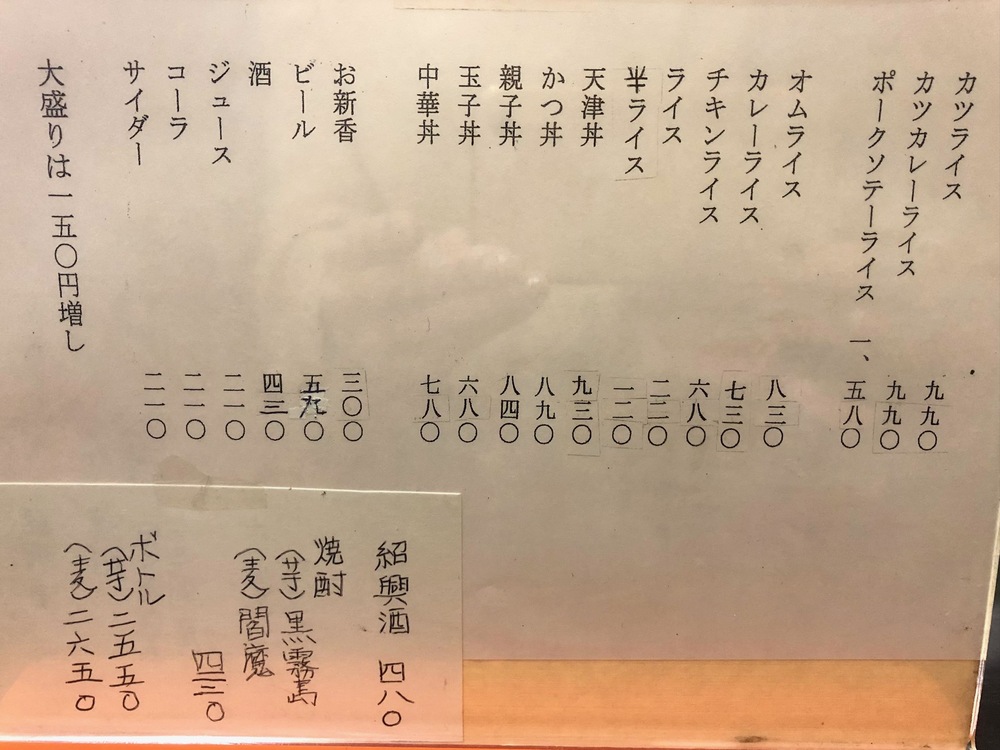 カツライス 九九〇
カツカレーライス 九九〇
ポークソテーライス 一、五八〇
オムライス 八三〇
カレーライス 七三〇
チキンライス 六八〇
ライス 二二〇
半ライス 一二〇
天津丼 九三〇
かつ丼 八九〇
親子丼 八四〇
玉子丼 六八〇
中華丼 七八〇
お新香 三〇〇
ビール 五九〇
酒 四三〇
ジュース 二一〇
コーラ 二一〇
サイダー 二一〇
大盛りは一五〇円増し
紹興酒 四八〇
焼酎
(芋)黒霧島
(麦)閻魔
四三〇
ボトル
(芋)二五五〇
(麦)二六五〇